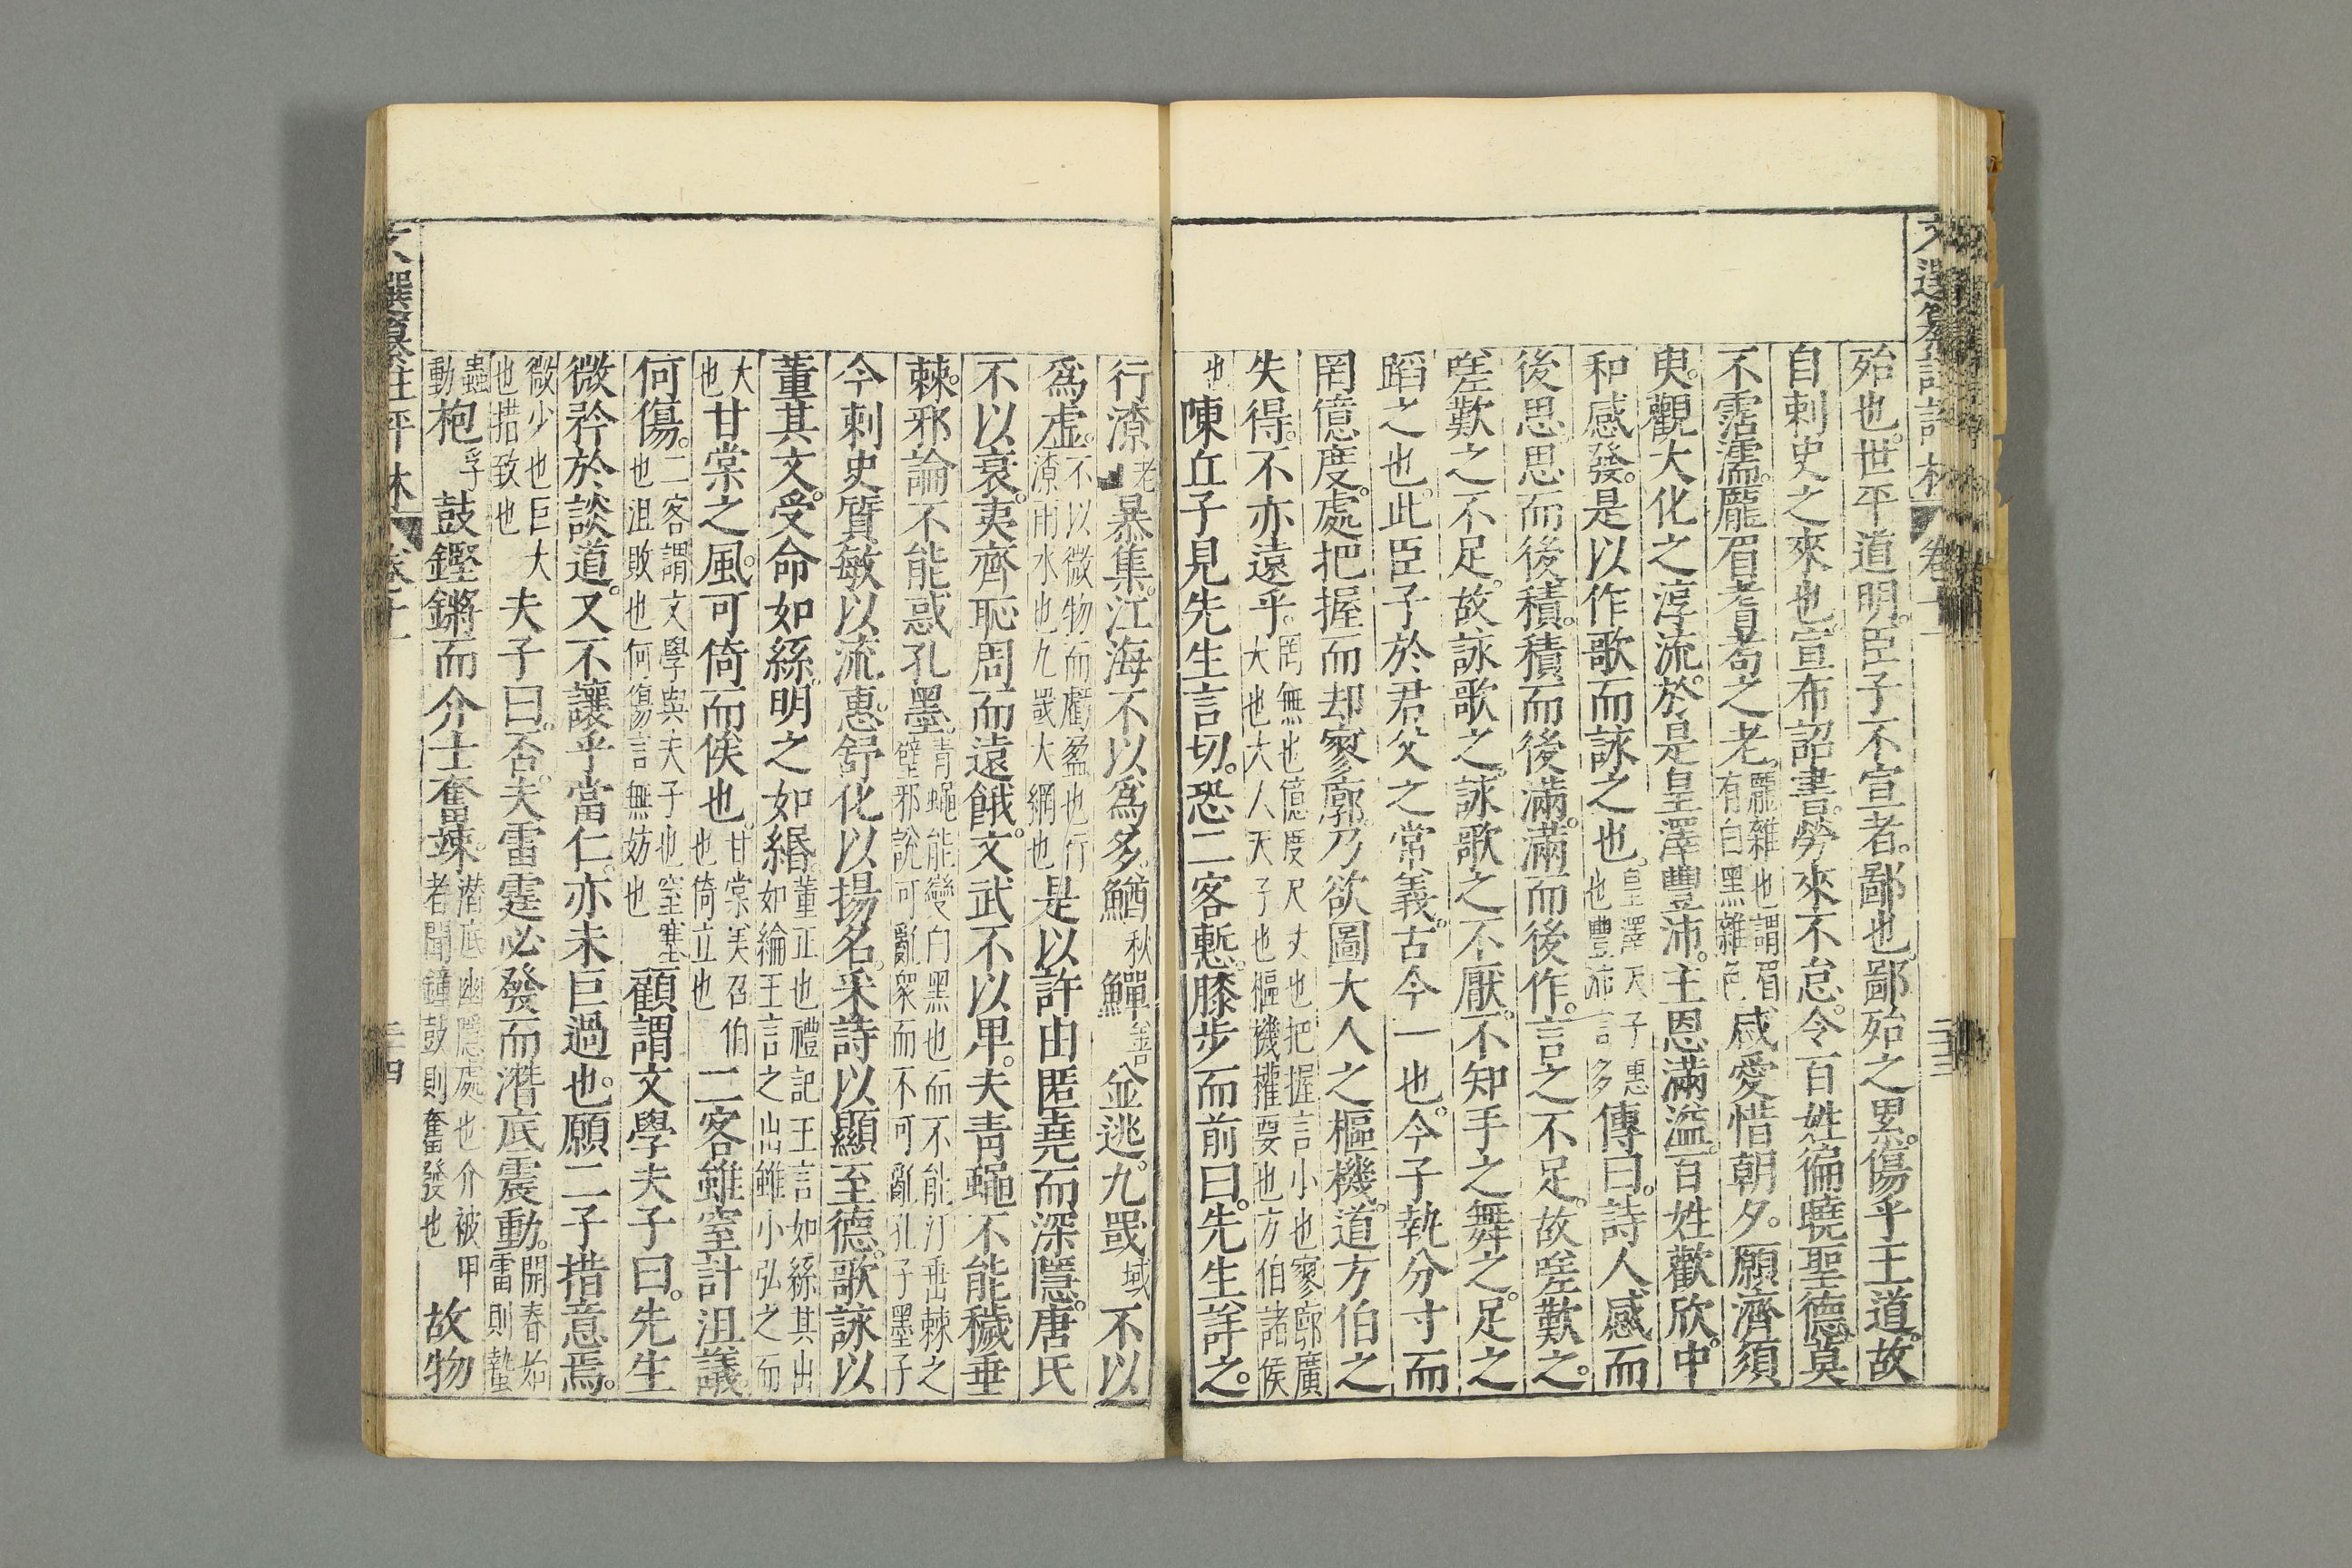 文選纂註評林 卷十一 三十三
殆也。世平道明。臣子不宣者。鄙也。鄙殆之累。傷乎王道。故
自刺史之來也。宣布詔書。勞來不怠。令百姓徧曉聖德。莫
不霑濡。厖眉耆耇之老。厖雜也謂眉有白黑雜色咸愛惜朝夕。願濟須
臾。觀大化之淳流。於是皇澤豐沛。主恩滿溢。百姓歡欣。中
和感發。是以作歌而詠之也。皇澤天子惠也豐沛言多傳曰。詩人感而
後思。思而後積。積而後滿。滿而後作。言之不足。故嗟歎之。
嗟歎之不足。故詠歌之。詠歌之不厭。不知手之舞之。足之
蹈之也。此臣子於君父之常義。古今一也。今子執分寸而
罔億度。處把握而却寥廓。乃欲圖大人之樞機。道方伯之
失得。不亦遠乎。罔無也億度尺丈也把握言小也寥廓廣大也大人天子也樞機權要也方伯諸侯
也陳丘子見先生言切。恐二客慙。膝步而前曰。先生詳之。
行潦老暴集。江海不以爲多。鰌秋鱓善竝逃。九罭域不以
爲虛。不以微物而虧盈也行潦雨水也九罭大網也是以許由匿堯而深隱。唐氏
不以衰。夷齊恥周而遠餓。文武不以卑。夫青蠅不能穢垂
棘。邪論不能惑孔墨。青蠅能變白黑也而不能汙垂棘之璧邪說可亂衆而不可亂孔子墨子
今刺史質敏以流惠。舒化以揚名。采詩以顯至德。歌詠以
董其文。受命如絲。明之如緡。董正也禮記王言如絲其出如綸王言之出雖小弘之而
大也甘棠之風。可倚而俟也。甘棠美召伯也倚立也二客雖窒計沮議。
何傷。二客謂文學與夫子也窒塞也沮敗也何傷言無妨也顧謂文學夫子曰。先生
微矜於談道。又不讓乎當仁。亦未巨過也。願二子措意焉。
微少也巨大也措致也夫子曰。否。夫雷霆必發而潛底震動。開春始雷則蟄
蟲動枹孚鼓鏗鏘而介士奮竦。潛底幽隱處也介被甲者聞鐘鼓則奮發也故物
文選纂註評林 卷十一 三十四